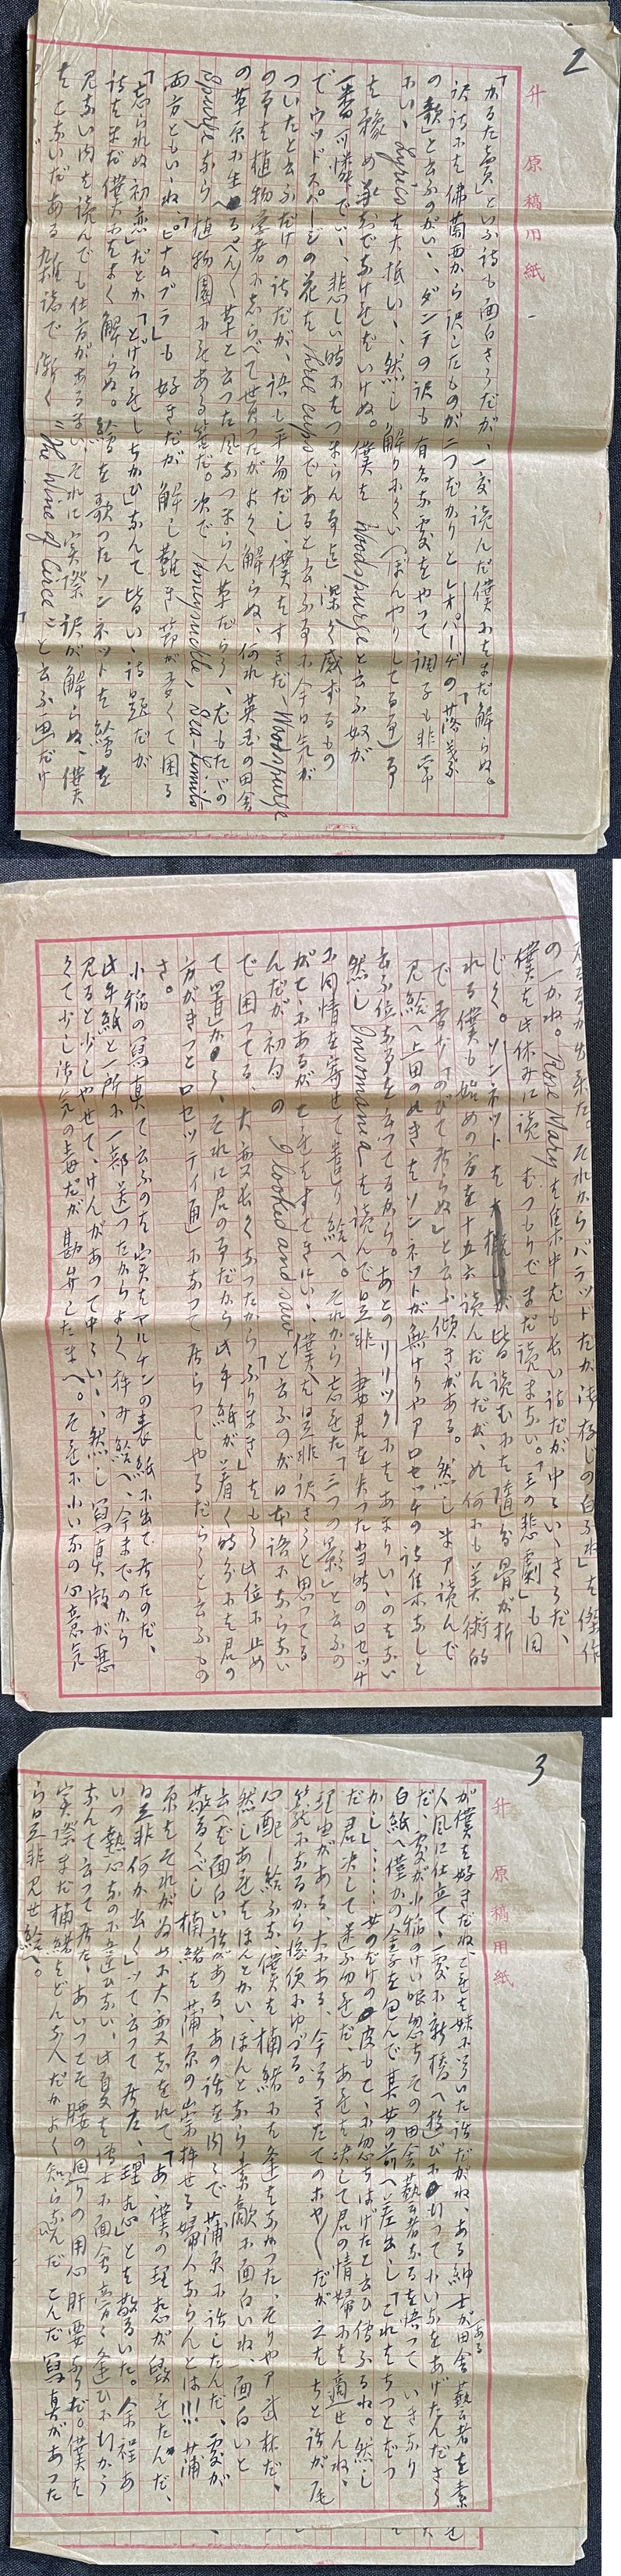 2
升原稿用紙
「かるた賣」といふ詩も面白さうだが、一度読んだ僕にはまだ解らぬ。
訳詩では佛蘭西から訳したものが二つばかりとレオパーヂの「落葉
の歌」と云ふのがいゝ、ダンテの訳も有名な處をやつて調子も非常
にいゝ、Lyricsは大抵いゝ、然し解りにくい（ぼんやりしてる事）事
僕は Woodspurge と云ふ奴が
一番可憐でいゝ、悲しい時にはつまらん事迄深く感ずるもの
でウッドスパージの花は three cups であると云ふ事に今日気が
ついたと云ふだけの詩だが、語も平易だし、僕はすきだ、Woodspurge
の事を植物学者にしらべて貰つたがよく解らぬ、何れ英国の田舎
の草原に生へるぺんぺん草と云つた風なつまらん草だらう、尤もたゞの
Spurge なら植物園にもある筈だ。次で Honeysuckle, Sea-limits
両方ともいゝね。「ヒナムブラ」も好きだが解し難き節が多くて困る
「忘られぬ初恋」だとか「とげられをしちかひ」なんて皆いゝ詩題だが
詩はまだ僕にはよく解らぬ。繪を歌つたソンネットは繪を
見ない内は読んでも仕方があるまい、それに実際訳が解らぬ、僕
もと
ある雑誌で漸く "The Wine of Circe" と云ふ画だけ
見る事が出来た。それからバラッドだが御存じの白ふね」は傑作
の一かね。Rose Mary は集中尤も長い詩だが中々いゝさうだ、
僕は此休みに読むつもりでまだ読まない。「王の悲劇」も同
じく。ソンネットは
皆読むには随分骨が折
れる僕も始めの方を十五六読んだんだが、如何にも美術的
で
「のびて居らぬ」と云ふ傾きがある。然しまア読んで
見給へ上田のぬきはソンネットが無けりやアロセッチの詩集なしと
云ふ位な事を云つてるから。あとのリリックにはあまりいゝのはない
然し Insomania を読んで是非妻君を失つた当時のロセッチ
に同情を寄せて遣り給へ。それから忘れた「三つの影」と云ふの
がと
あるがこれはすてきにいゝ、僕は是非訳さうと思つてる
んだが初句の I looked and saw と云ふのが日本語にならない
で困つてる、大変長くなつたから「ふりまき」はもう此位に止め
て置かう、それに君の事だから此手紙が着く時分には君の
方がきつとロセッティ通になつて居らつしやるだらうと云ふもの
さ。
小稲の寫真て云ふのは実はアルケンの表紙に出て居たのだ、
此手紙と一所に一部送つたからよく拝み給へ、今までのから
見ると少しやせて、けんがあつて中々いゝ、然し寫真版が悪
くて少し御気の毒だが勘弁したまへ。それに小いなの心意気
3
升原稿用紙
が僕は好きだね、これは妹に聞いた話だがね、ある紳士がある田舎藝者を素
人風に仕立て、一夜新橋へ遊びに行つて小いなをあげたんださう
だ、處が小稲のけい眼忽ちその田舎藝者なるを悟つていきなり
白紙へ僅かの金子を包んで其女の前へ差出し「これはちつとだつ
かし」……女のばけの皮も
忽ちはげたと云ひ傳ふるね。然し
だ君決して迷ふ勿れだ、あれは決して君の情婦には適せんね、
理由がある、大にある、今ききたてのホヤ〳〵だがこれはちと話が尾
籠になるから後便にゆづる。
心配し給ふな僕は楠緒には逢はなかつた、そりやア武林だ、
然しあれはほんとかい、ほんとなら素敵に面白いね、面白いと
云へば面白い話がある、あの話を聞いて蒲原に話したんだ、處が
驚くべし楠緒は蒲原の崇拝せる婦人ならんとは!!! 蒲
原はそれが為めに大変志をれて「あゝ僕の理想が毀れたんだ、
是非何か書く」つて云つて居た、「理想」とは驚いた。余程あ
いつ熱心なのに違ひない、此夏は博士に面会旁々逢ひに行かう
なんて云つて居た、あいつこそ腰の固りの用心肝要ならだ。僕は
実際まだ楠緒はどんな人だかよく知らないんだこんだ寫真があつた
ら是非見せ給へ。